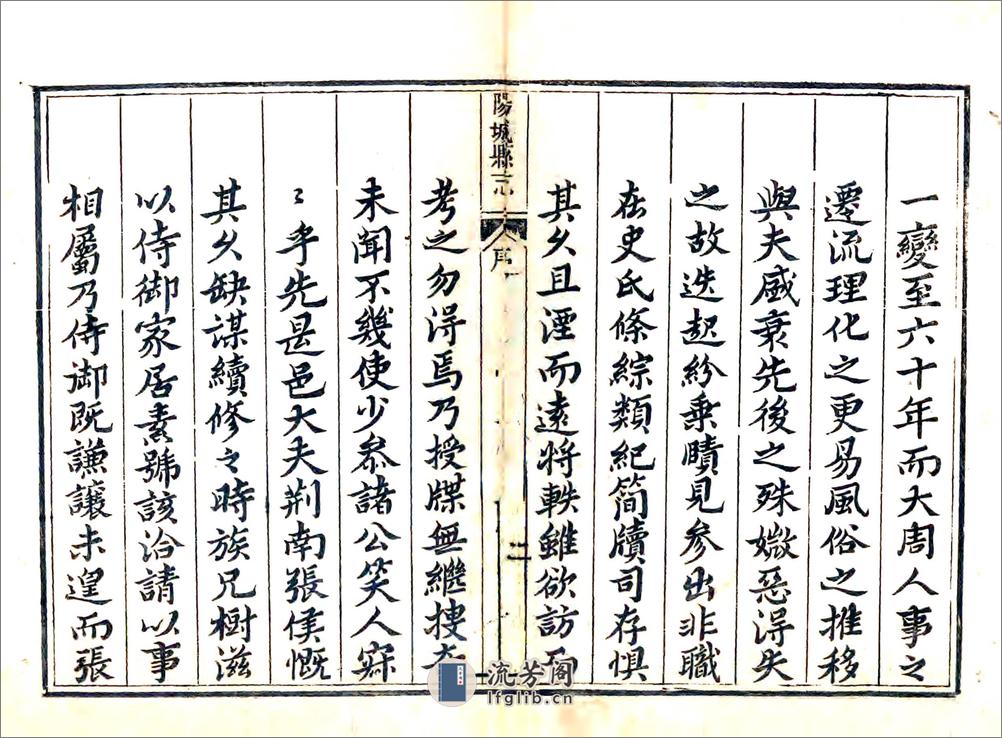 一變至六十年而大周人事之
遷流理化之更易風俗之推移
與夫盛衰先後之殊媺惡淂失
之故迭起紛乗賾見參出非職
在史氏條綜類紀簡牘司存惧
其久且湮而遠將軼雖欲訪而
陽城縣志
序
二
考之勿淂焉乃授牒無繼捜
未聞不幾使少叅諸公笑人寂
〻乎先是邑大夫荆南張侯慨
其久缺謀續修之時族兄樹滋
以侍御家居素號該洽請以事
相屬乃侍御既謙讓未遑而張
流芳阁
lfglib.cn